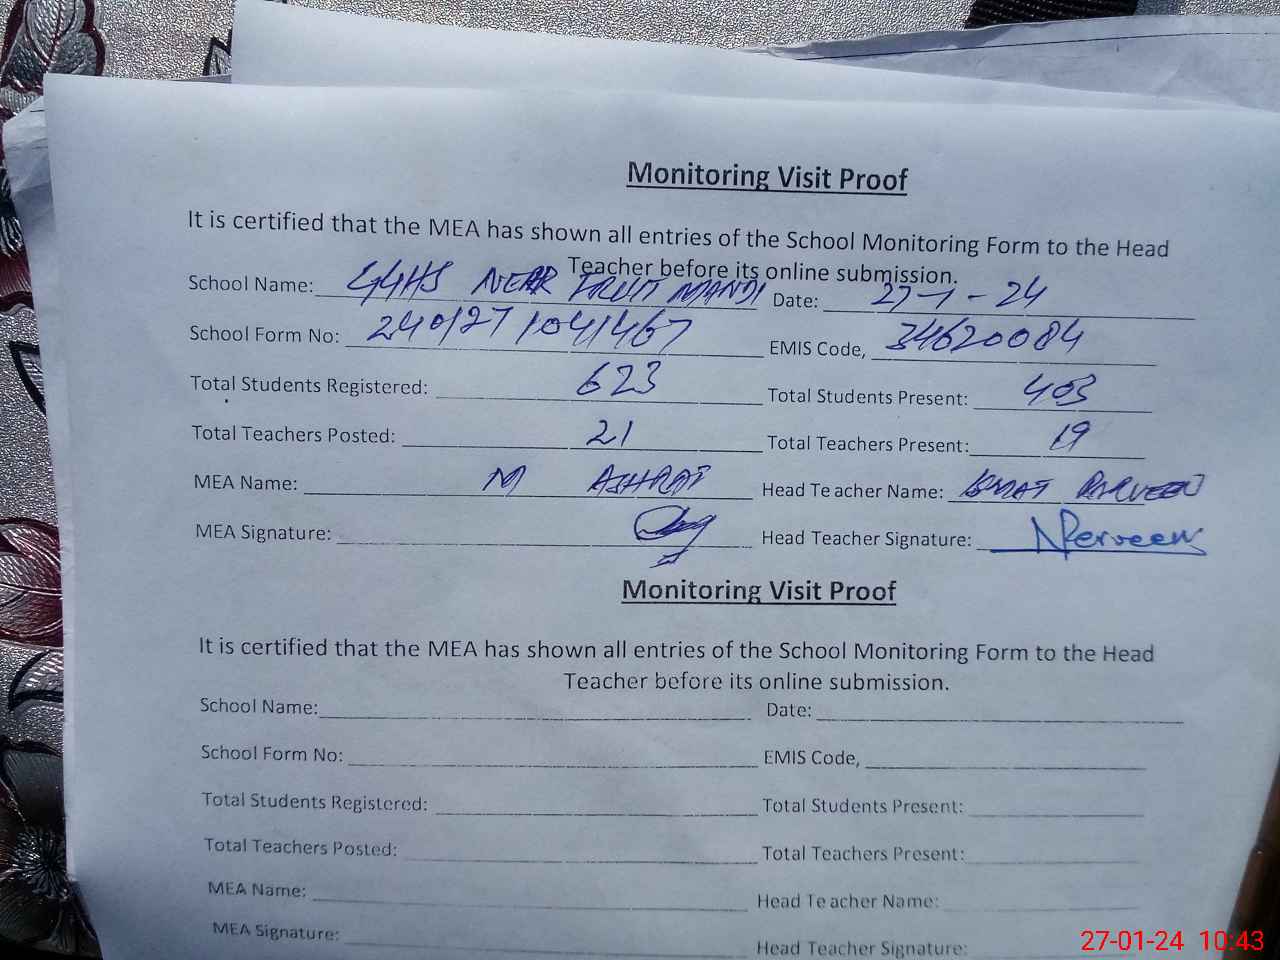 Monitoring Visit Proof
It is certified that the MEA has shown all entries of the School Monitoring Form to the Head
Teacher before its online submission.
School Name: GGHS NEAR FRUIT MANDI Date: 27-1-24
School Form No: 240127 1041467 EMIS Code, 34620084
Total Students Registered: 623 Total Students Present: 403
Total Teachers Posted: 21 Total Teachers Present: 19
MEA Name: M ASHRAF Head Teacher Name: PARVEEN
MEA Signature: Head Teacher Signature: NPerveen
Monitoring Visit Proof
It is certified that the MEA has shown all entries of the School Monitoring Form to the Head
Teacher before its online submission.
School Name: Date:
School Form No: EMIS Code,
Total Students Registered: Total Students Present:
Total Teachers Posted: Total Teachers Present:
MEA Name: Head Teacher Name:
MEA Signature: Head Teacher Signature:
27-01-24 10:43